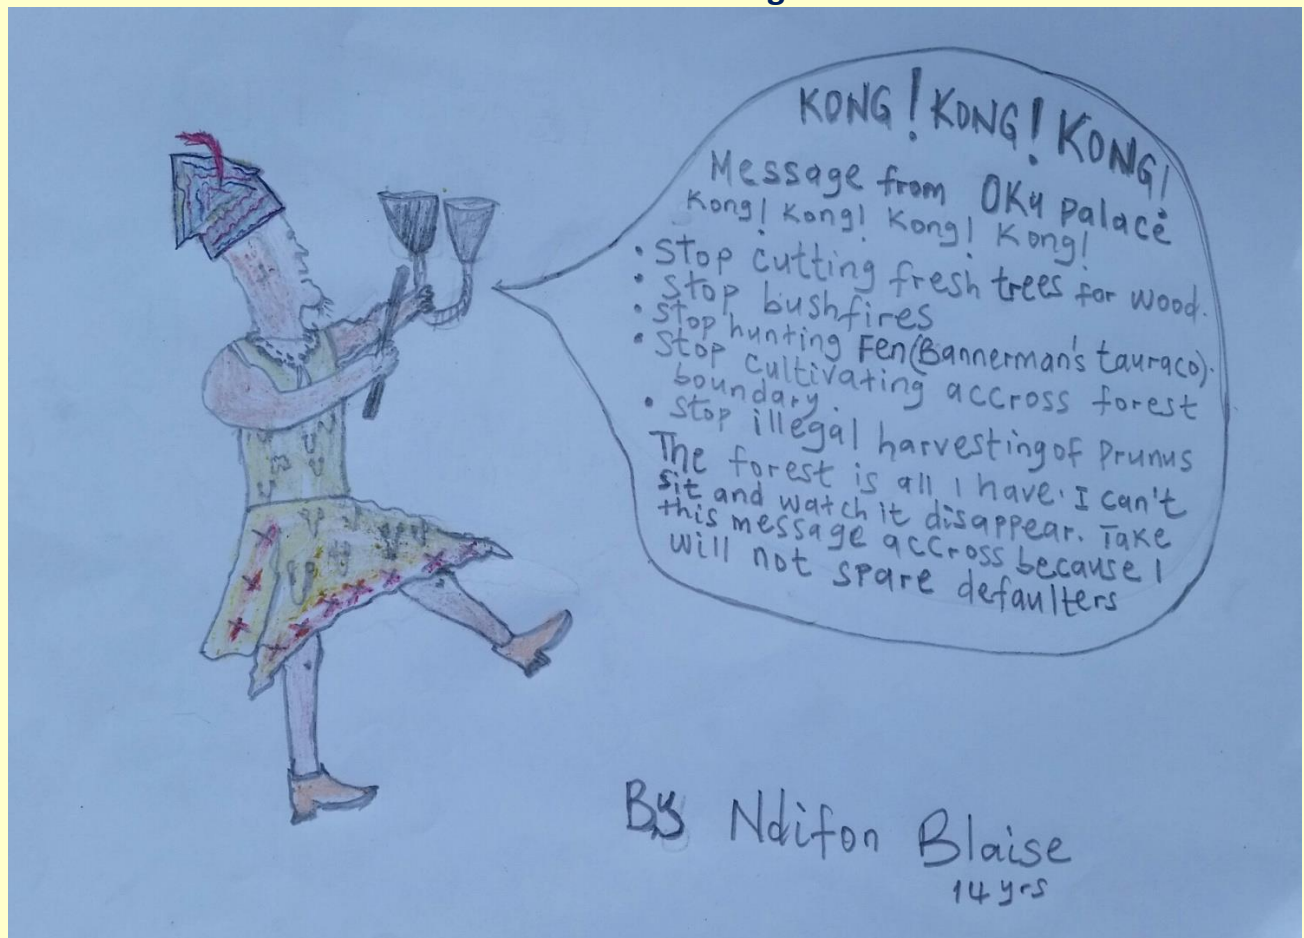 KONG! KONG! KONG!
Message from OKu palace
Kong! Kong! Kong! Kong!
• Stop cutting fresh trees for wood.
• Stop bushfires
• Stop hunting Fen(Bannerman's tauraco).
• Stop cultivating accross forest
boundary.
• Stop illegal harvesting of Prunus
The forest is all I have. I can't
sit and watch it disappear. Take
this message accross because I
will not spare defaulters
By Ndifon Blaise
14 yrs